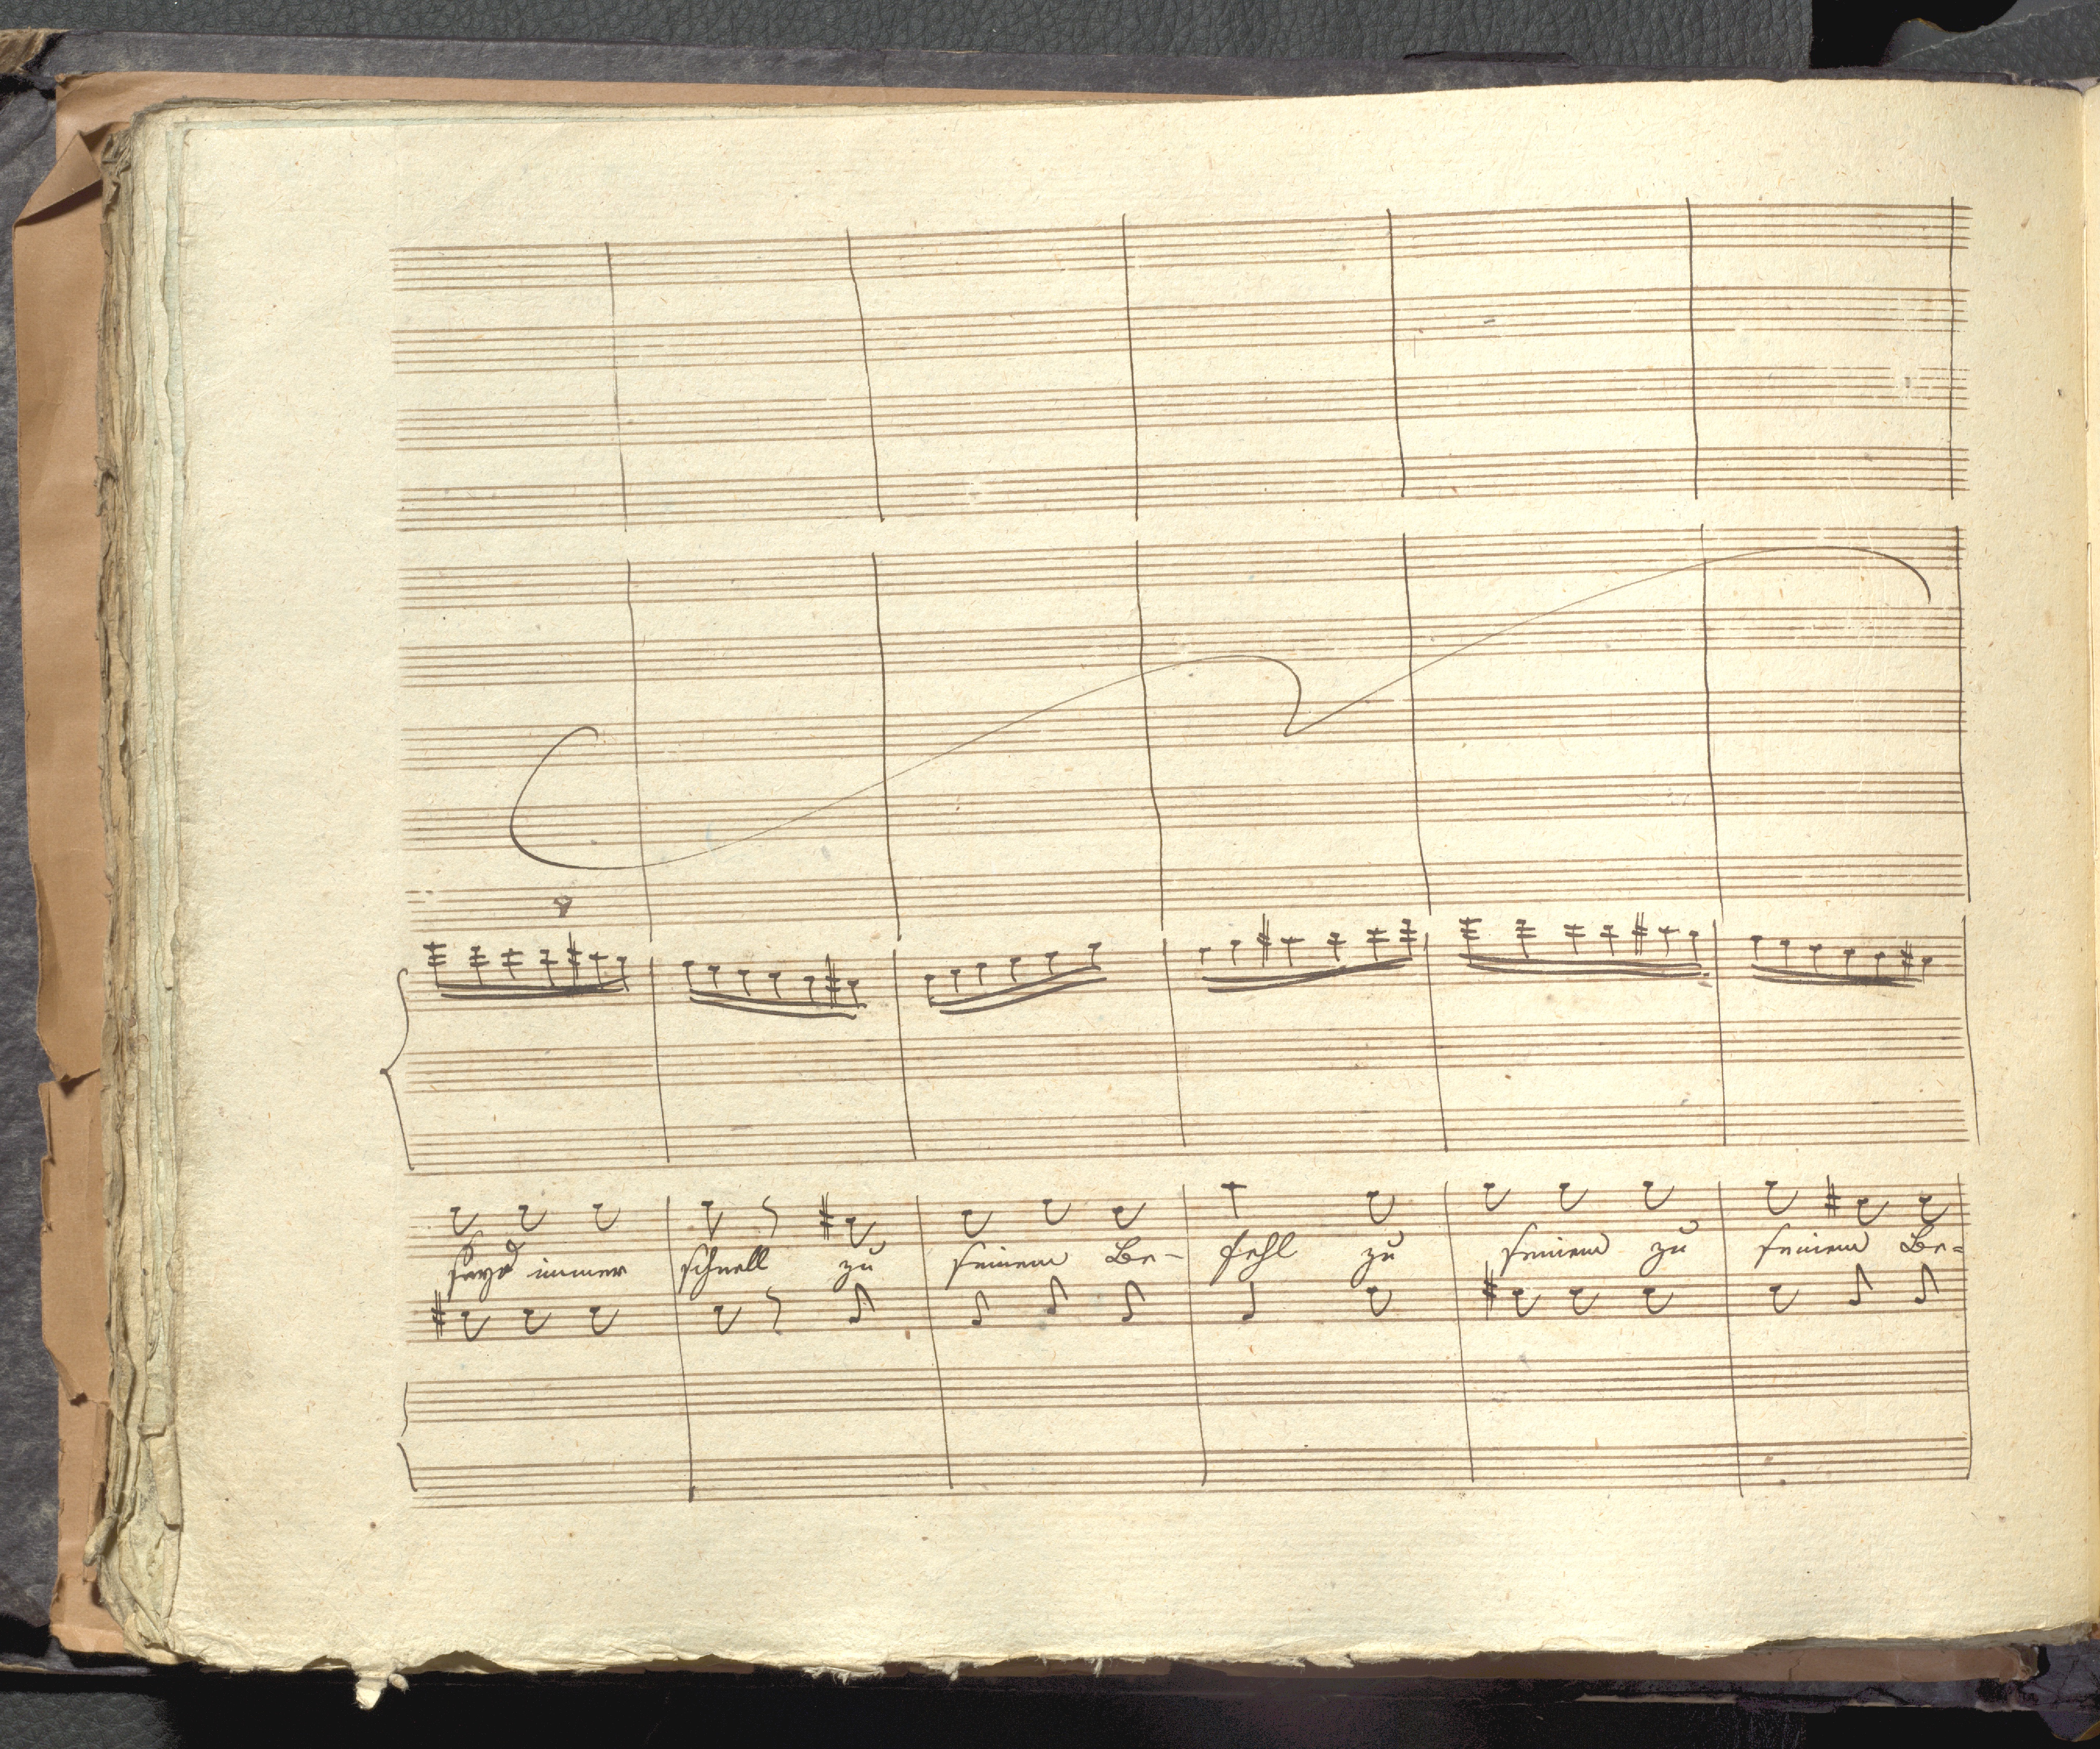 seyd immer schnell zu seinem Be- fehl zu seinem zu seinem Be=